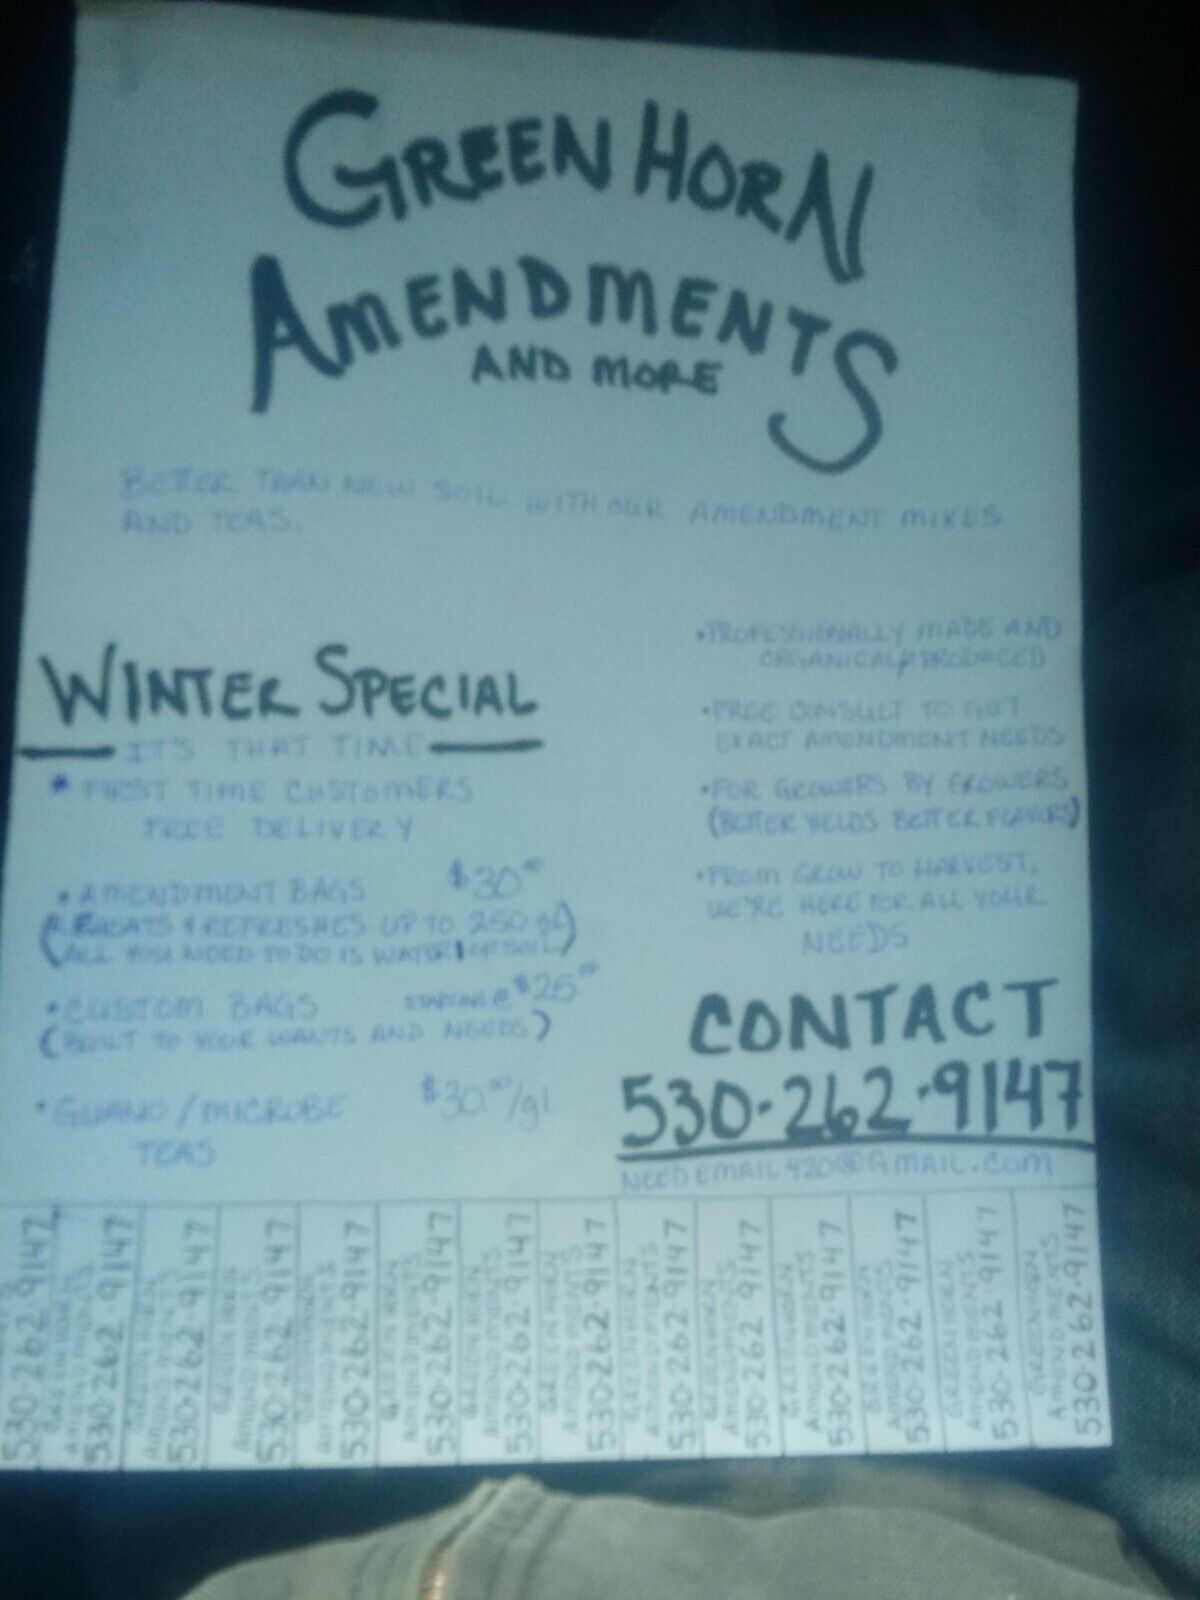 GREEN HORN
AMENDMENTS
AND MORE
BETTER THAN NEW SOIL WITH OUR AMENDMENT MIXES
AND TEAS.
WINTER SPECIAL
IT'S THAT TIME
* FIRST TIME CUSTOMERS
FREE DELIVERY
• AMENDMENT BAGS $30.00
& REFRESHES UP TO 250 gl
ALL YOU NEED TO DO IS WATER! OF SOIL)
• CUSTOM BAGS STARTING @ $25.00
(BUILT TO YOUR WANTS AND NEEDS)
• GUANO / MICROBE $30.00/gl
TEAS
• PROFESSIONALLY MADE AND
ORGANICALLY PRODUCED
• FREE CONSULT TO GET
EXACT AMENDMENT NEEDS
• FOR GROWERS BY GROWERS
(BETTER YIELDS BETTER FLAVORS)
• FROM GROW TO HARVEST,
WE'RE HERE FOR ALL YOUR
NEEDS
CONTACT
530-262-9147
NEEDEMAIL420@GMAIL.COM
530-262-9147
GREEN HORN
AMENDMENTS
530-262-9147
GREEN HORN
AMENDMENTS
530-262-9147
GREEN HORN
AMENDMENTS
530-262-9147
GREENHORN
AMENDMENTS
530-262-9147
GREEN HORN
AMENDMENTS
530-262-9147
GREEN HORN
AMENDMENTS
530-262-9147
GREEN HORN
AMENDMENTS
530-262-9147
GREEN HORN
AMENDMENTS
530-262-9147
GREENHORN
AMENDMENTS
530-262-9147
GREENHORN
AMENDMENTS
530-262-9147
GREEN HORN
AMENDMENTS
530-262-9147
GREEN HORN
AMENDMENTS
530-262-9147
GREEN HORN
AMENDMENTS
530-262-9147